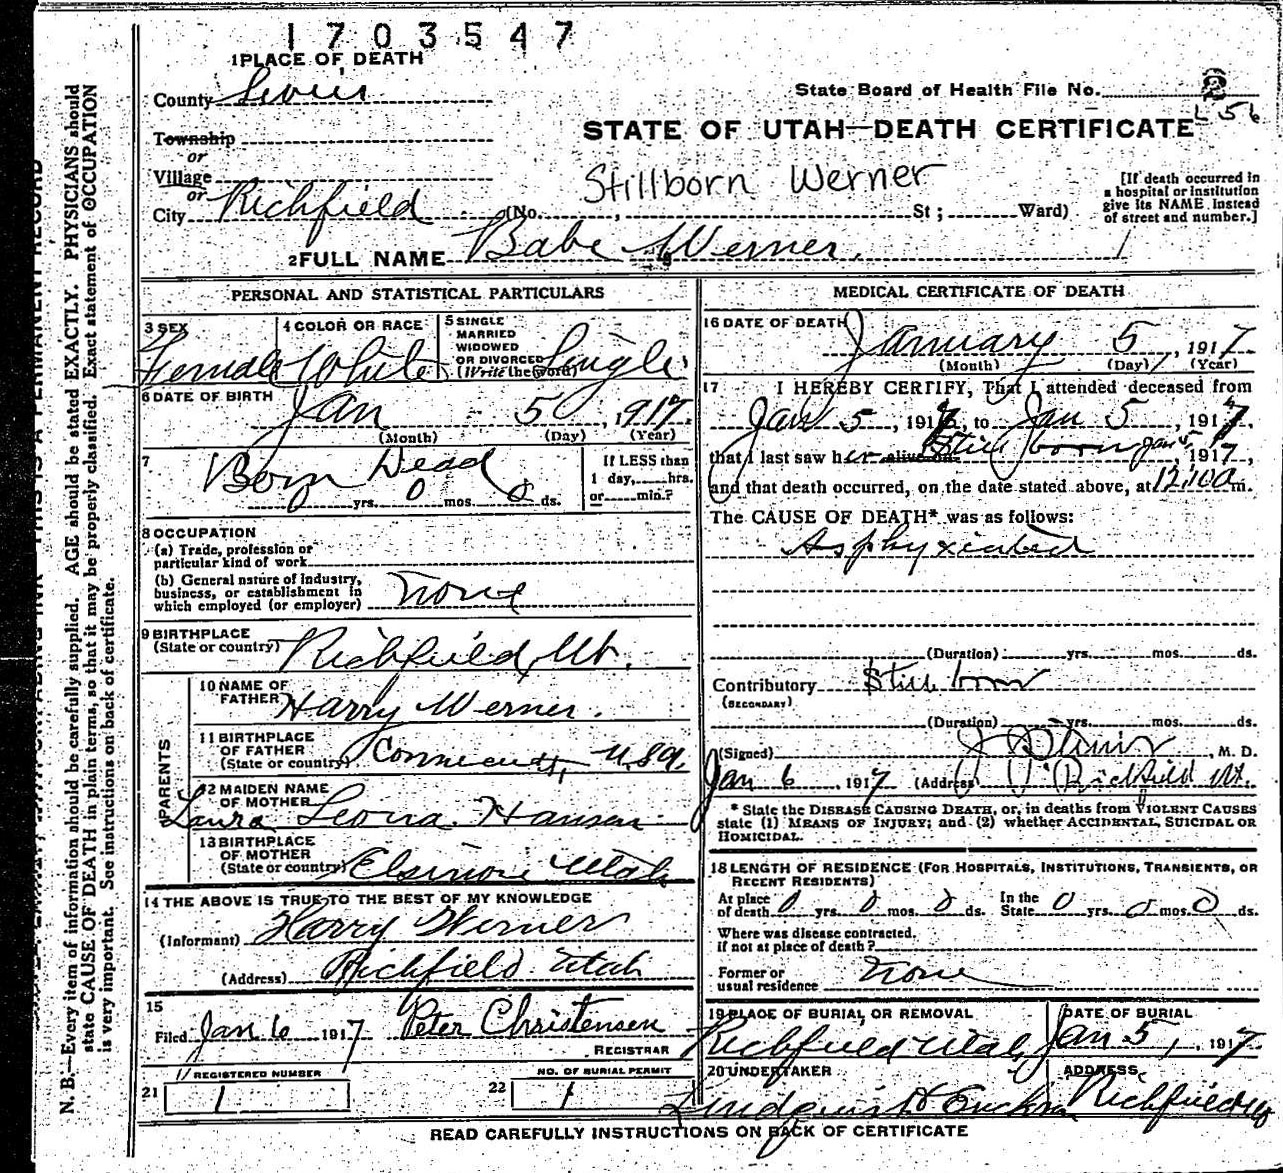 1703547
1 PLACE OF DEATH
County Sevier
State Board of Health File No.
L 56
Township
or
Village
or
STATE OF UTAH—DEATH CERTIFICATE
Stillborn Werner
City Richfield (No. , St ; Ward)
[If death occurred in
a hospital or institution
give its NAME instead
of street and number.]
2 FULL NAME Babe Werner.
PERSONAL AND STATISTICAL PARTICULARS
3 SEX
Female
4 COLOR OR RACE
White
5 SINGLE
MARRIED
WIDOWED
OR DIVORCED
(Write the word)
Single
6 DATE OF BIRTH
Jan 5, 1917
(Month) (Day) (Year)
7
Born Dead
yrs. 0 mos. 0 ds.
If LESS than
1 day, hrs.
or min.?
8 OCCUPATION
(a) Trade, profession or
particular kind of work
(b) General nature of industry,
business, or establishment in
which employed (or employer) none
9 BIRTHPLACE
(State or country) Richfield, Ut.
PARENTS
10 NAME OF
FATHER Harry Werner.
11 BIRTHPLACE
OF FATHER
(State or country) Connecticutt, U.S.A.
12 MAIDEN NAME
OF MOTHER
Laura Leona Hansen
13 BIRTHPLACE
OF MOTHER
(State or country) Elsinore Utah
14 THE ABOVE IS TRUE TO THE BEST OF MY KNOWLEDGE
(Informant) Harry Werner
(Address) Richfield Utah
15
Filed Jan 6 1917 Peter Christensen
REGISTRAR
REGISTERED NUMBER
21 1
NO. OF BURIAL PERMIT
22 1
MEDICAL CERTIFICATE OF DEATH
16 DATE OF DEATH
January 5, 1917.
(Month) (Day) (Year)
17 I HEREBY CERTIFY, That I attended deceased from
Jan 5, 1917, to Jan 5, 1917,
that I last saw her alive on Still born Jan 5, 1917,
and that death occurred, on the date stated above, at 12:10 a m.
The CAUSE OF DEATH* was as follows:
Asphyxiated
(Duration) yrs. mos. ds.
Contributory Still born
(SECONDARY)
(Duration) yrs. mos. ds.
(Signed) , M. D.
Jan 6, 1917 (Address) Richfield Ut.
* State the DISEASE CAUSING DEATH, or, in deaths from VIOLENT CAUSES
state (1) MEANS OF INJURY; and (2) whether ACCIDENTAL, SUICIDAL OR
HOMICIDAL.
18 LENGTH OF RESIDENCE (FOR HOSPITALS, INSTITUTIONS, TRANSIENTS, OR
RECENT RESIDENTS)
At place
of death 0 yrs. 0 mos. 0 ds. In the
State 0 yrs. 0 mos. 0 ds.
Where was disease contracted,
if not at place of death?
Former or
usual residence none
19 PLACE OF BURIAL OR REMOVAL
Richfield Utah
DATE OF BURIAL
Jan 5, 1917.
20 UNDERTAKER
Lindquist
ADDRESS
Richfield
READ CAREFULLY INSTRUCTIONS ON BACK OF CERTIFICATE
N. B.—Every item of information should be carefully supplied. AGE should be stated EXACTLY. PHYSICIANS should
state CAUSE OF DEATH in plain terms, so that it may be properly classified. Exact statement of OCCUPATION
is very important. See instructions on back of certificate.
THIS IS A PERMANENT RECORD